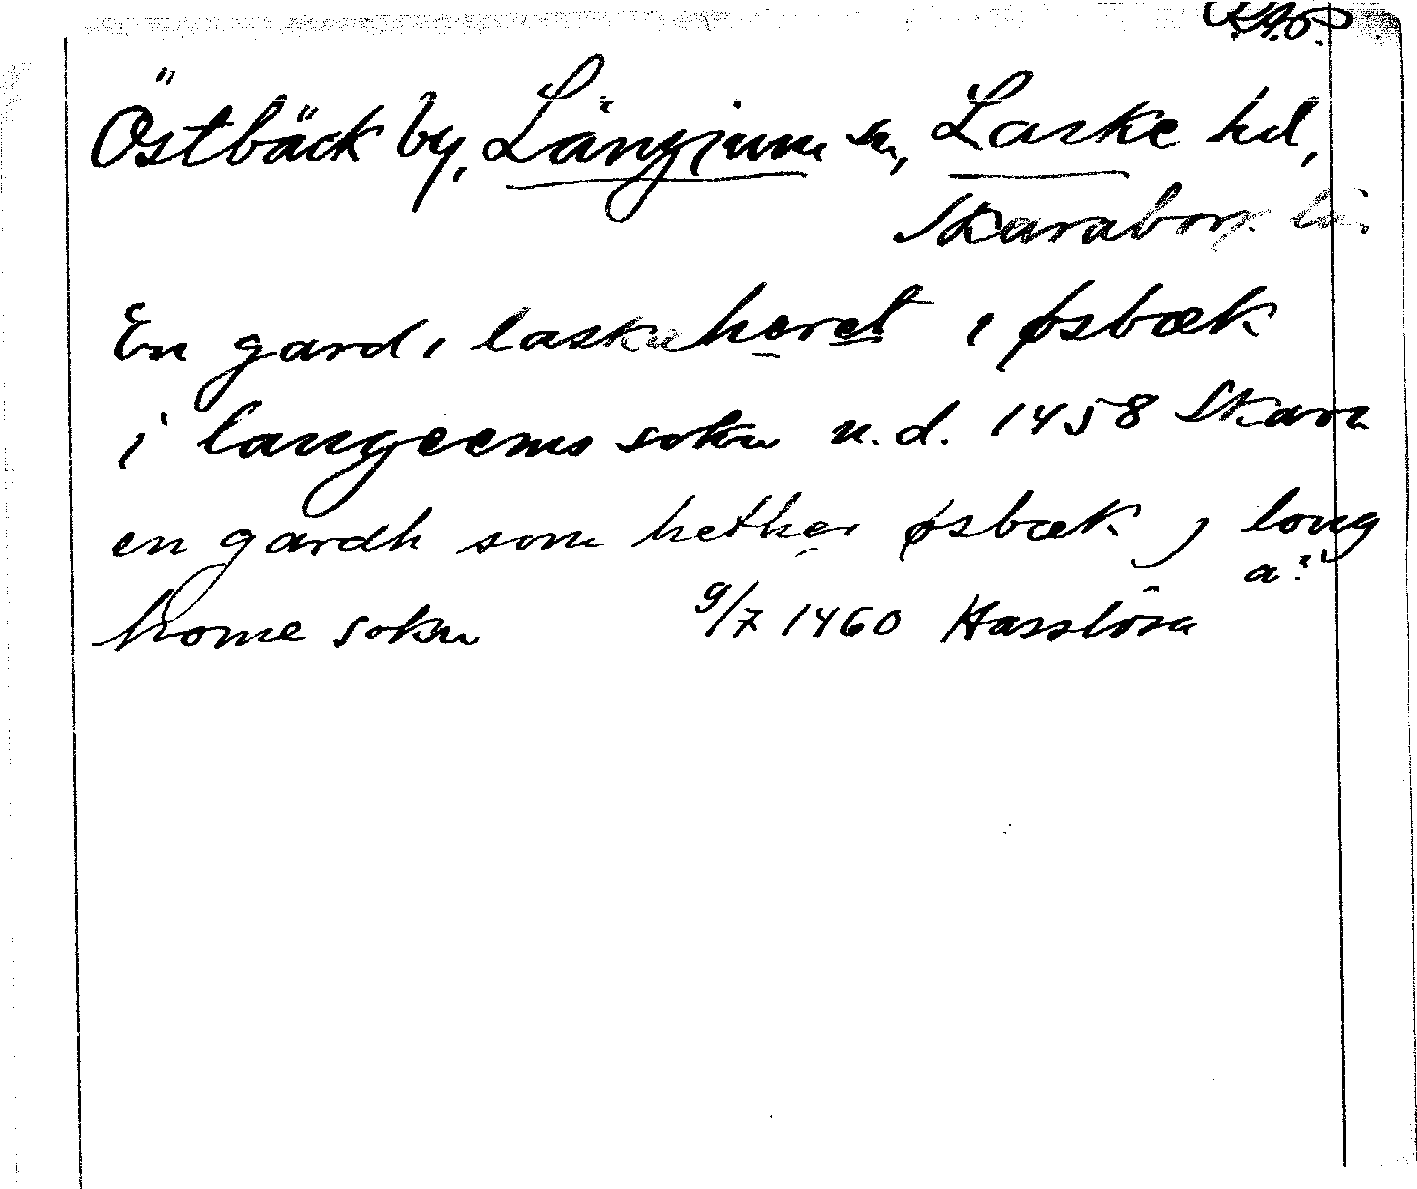 Östbäck by, Långjum sn, Laske hd,
Skaraborgs län.
En gard i laskeheret i øsbæk
i langeems sokn u.d. 1458 Skara
en gardh som hether øsbæk j long
a?
home sokn 9/7 1460 Hasslösa